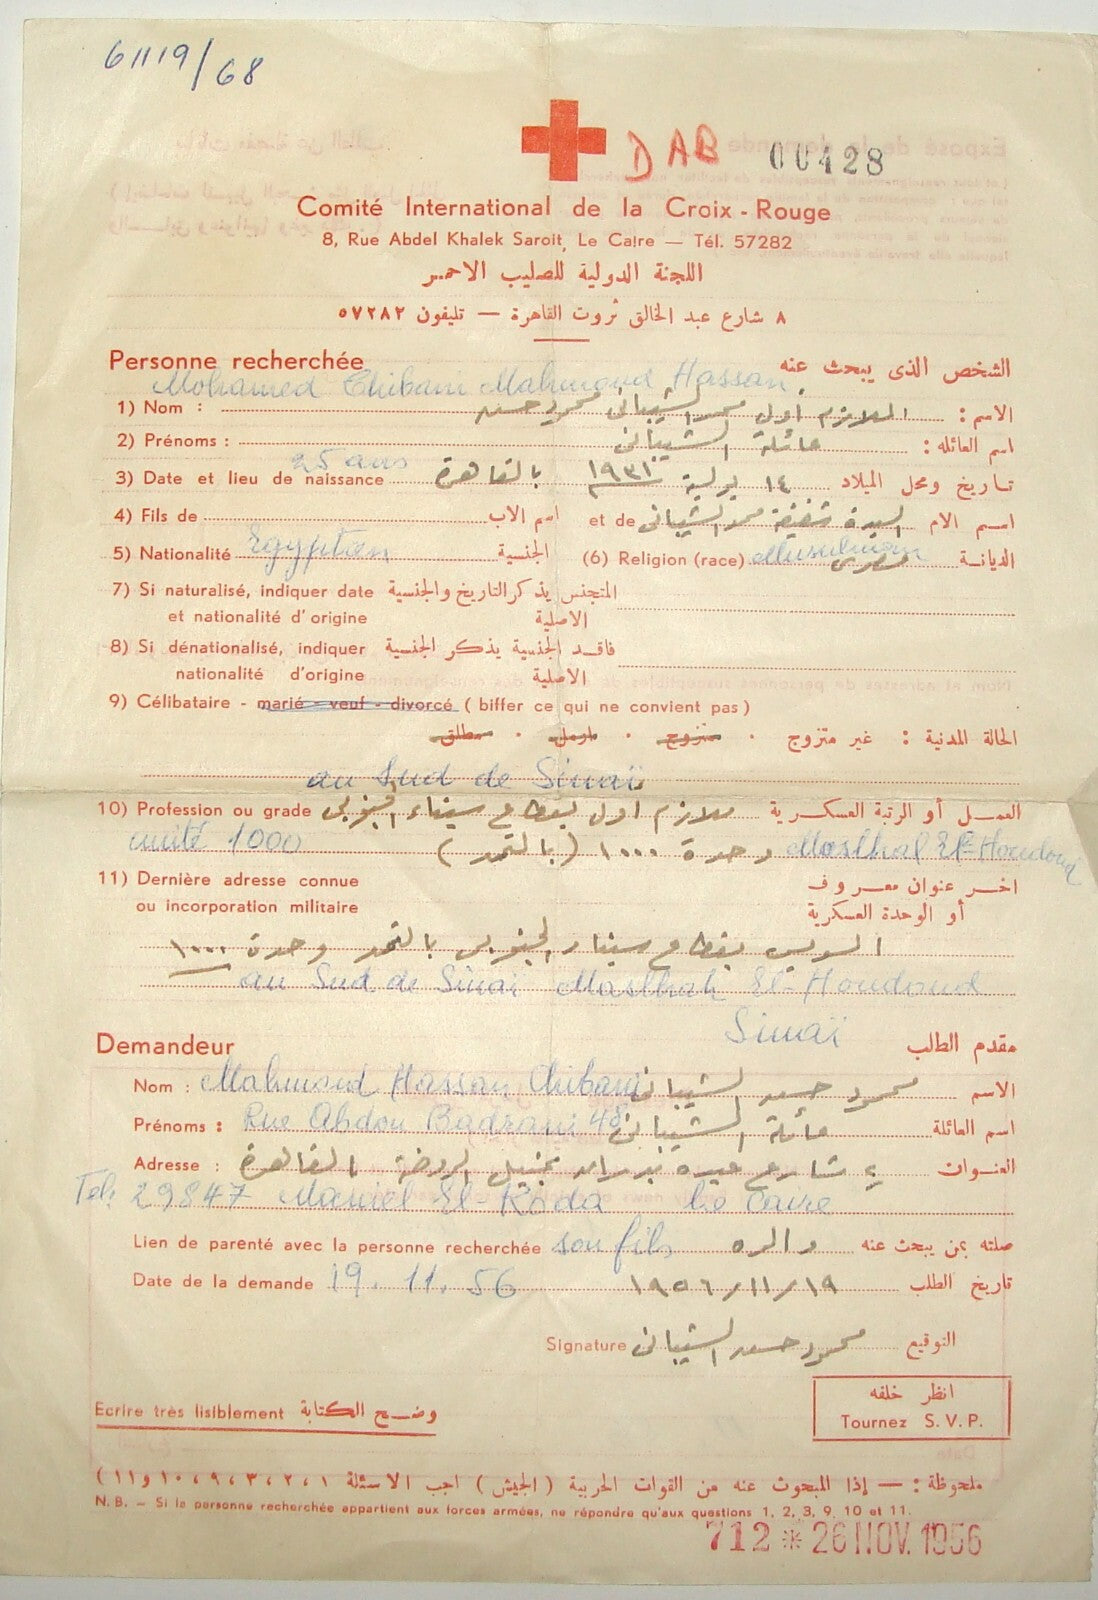 61119/68
DAB 00428
Comité International de la Croix-Rouge
8, Rue Abdel Khalek Saroit, Le Caire — Tél. 57282
اللجنة الدولية للصليب الاحمر
٨ شارع عبد الخالق ثروت القاهرة — تليفون ٥٧٢٨٢
Personne recherchée الشخص الذى يبحث عنه
Mohamed Chibani Mahmoud Hassan
1) Nom : الملازم أول محمد الشيبانى محمود حسن الاسم :
2) Prénoms : عائلة الشيبانى اسم العائله :
25 ans
3) Date et lieu de naissance بالقاهرة ١٤ يولية ١٩٣١ تاريخ ومحل الميلاد
4) Fils de اسم الاب et de السيدة شفيقة محمد الشيبانى اسم الام
5) Nationalité Egyptien الجنسية (6) Religion (race) Musulman الديانة
7) Si naturalisé, indiquer date المتجنس يذكر التاريخ والجنسية
et nationalité d'origine الاصلية
8) Si dénationalisé, indiquer فاقد الجنسية يذكر الجنسية
nationalité d'origine الاصلية
9) Célibataire - marié - veuf - divorcé ( biffer ce qui ne convient pas )
الحالة المدنية : غير متزوج · متزوج · ارمل · مطلق
au Sud de Sinaï
10) Profession ou grade ملازم اول بقطاع سيناء الجنوبى العمل أو الرتبة العسكرية
unité 1000 وحدة ١٠٠٠ (بالتمد) Maslhal El-Houdoud
11) Dernière adresse connue اخر عنوان معروف
ou incorporation militaire أو الوحدة العسكرية
السويس بقطاع سيناء الجنوبى بالتمد وحدة ١٠٠٠
au Sud de Sinaï Maslhah El-Houdoud
Sinaï
Demandeur مقدم الطلب
Nom : Mahmoud Hassan Chibani محمود حسن الشيبانى الاسم
Prénoms : Rue Abdou Badrani 48 عائلة الشيبانى اسم العائلة
Adresse : شارع عبده بدرانى بمنيل الروضة القاهرة العنوات
Tel. 29847 Maniel El-Roda Le Caire
Lien de parenté avec la personne recherchée son fils والده صلته بمن يبحث عنه
Date de la demande 19. 11. 56 ١٩/١١/١٩٥٦ تاريخ الطلب
Signature محمود حسن الشيبانى التوقيع
Ecrire très lisiblement وضح الكتابة
انظر خلفه
Tournez S. V. P.
ملحوظة : — إذا المبحوث عنه من القوات الحربية ( الجيش ) اجب الاسئلة ١ ، ٢ ، ٣ ، ٩ ، ١٠ و ١١ )
N. B. – Si la personne recherchée appartient aux forces armées, ne répondre qu'aux questions 1, 2, 3, 9, 10 et 11.
712 * 26 NOV. 1956